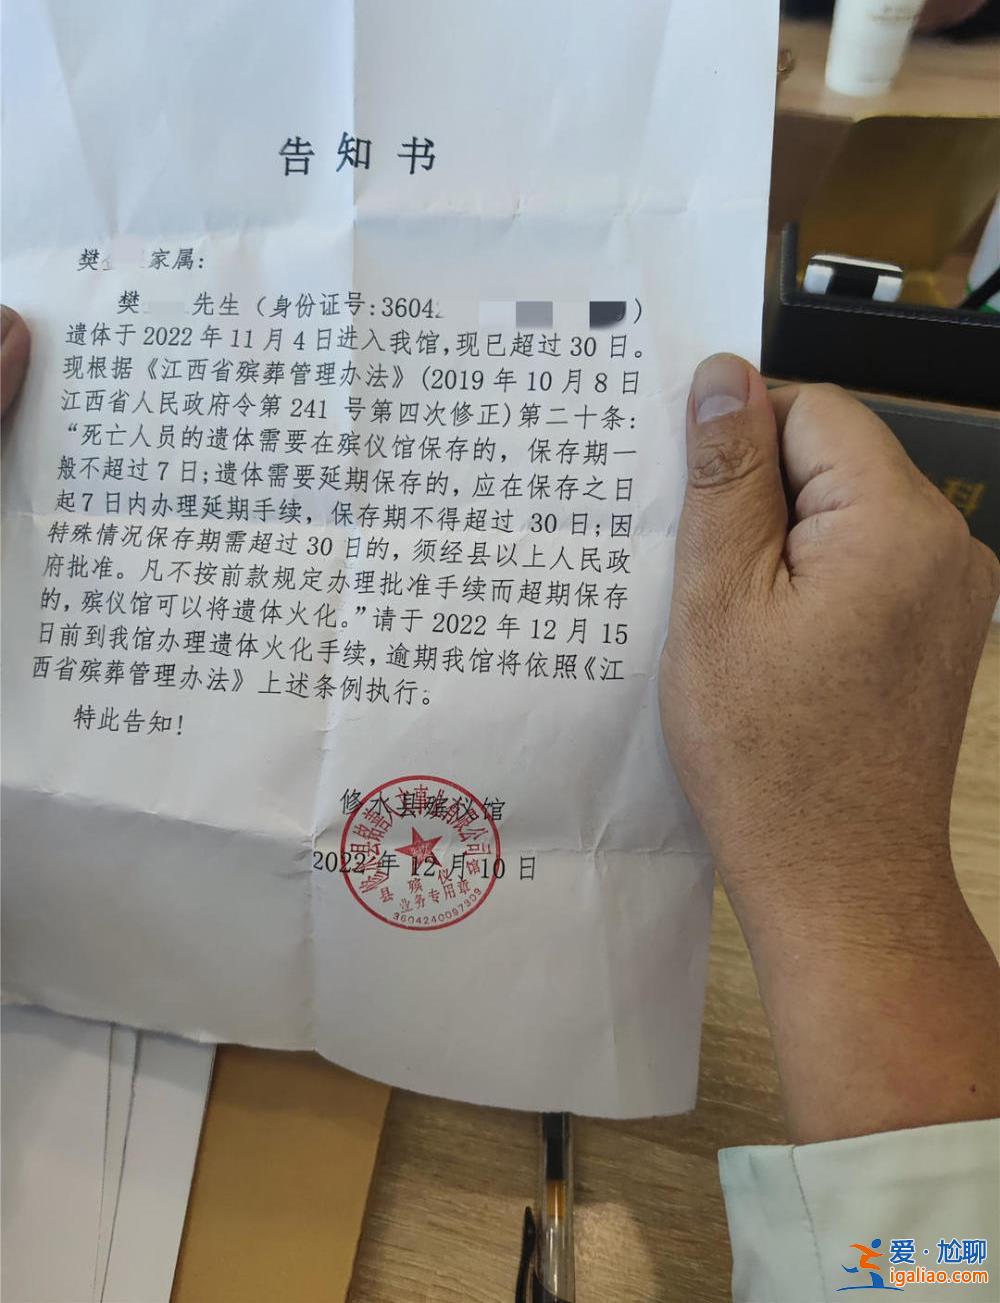 告知书
樊 家属：
樊 先生（身份证号:3604 ）
遗体于2022年11月4日进入我馆,现已超过30日。
现根据《江西省殡葬管理办法》(2019年10月8日
江西省人民政府令第241号第四次修正)第二十条:
“死亡人员的遗体需要在殡仪馆保存的,保存期一
般不超过7日;遗体需要延期保存的,应在保存之日
起7日内办理延期手续,保存期不得超过30日;因
特殊情况保存期需超过30日的,须经县以上人民政
府批准。凡不按前款规定办理批准手续而超期保存
的,殡仪馆可以将遗体火化。”请于2022年12月15
日前到我馆办理遗体火化手续,逾期我馆将依照《江
西省殡葬管理办法》上述条例执行。
特此告知!
修水县殡仪馆
2022年12月10日
县殡仪馆
业务专用章
3604240097309
爱·尬聊
igaliao.com